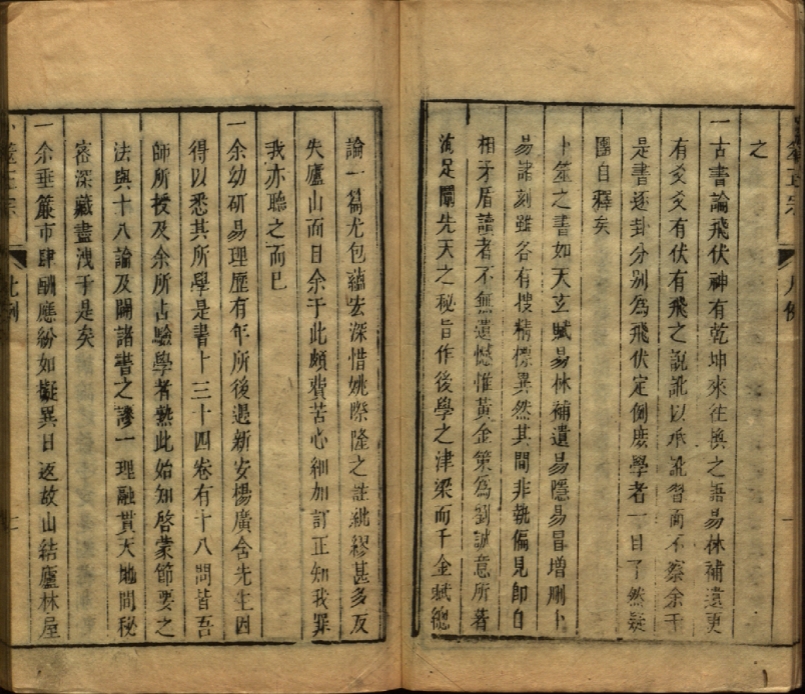 之
一古書論飛伏神有乾坤來往與之語易林補遺更
有爻爻有伏有飛之說訛以承訛習而不察余于
是書逐卦分別為飛伏定例庶學者一目了然疑
團自釋矣
卜筮之書如天玄賦易林補遺易隱易冒增刪卜
易諸刻雖各有搜精標異然其間非執偏見即自
相矛盾讀者不無遺憾惟黃金策為劉誠意所著
滿足闡先天之秘旨作後學之津梁而千金賦總
論一篇尤包蘊宏深惜姚際隆之註紕繆甚多反
失廬山面目余于此頗費苦心細加訂正知我罪
我亦聽之而已
一余幼研易理歷有年所後遇新安楊廣含先生因
得以悉其所學是書十三十四卷有十八問皆吾
師所授及余所占驗學者熟此始知啓蒙節要之
法與十八論及闢諸書之謬一理融貫天地間秘
密深藏盡洩于是矣
一余垂簾市肆酬應紛如擬異日返故山結廬林屋
筮正宗
凡例